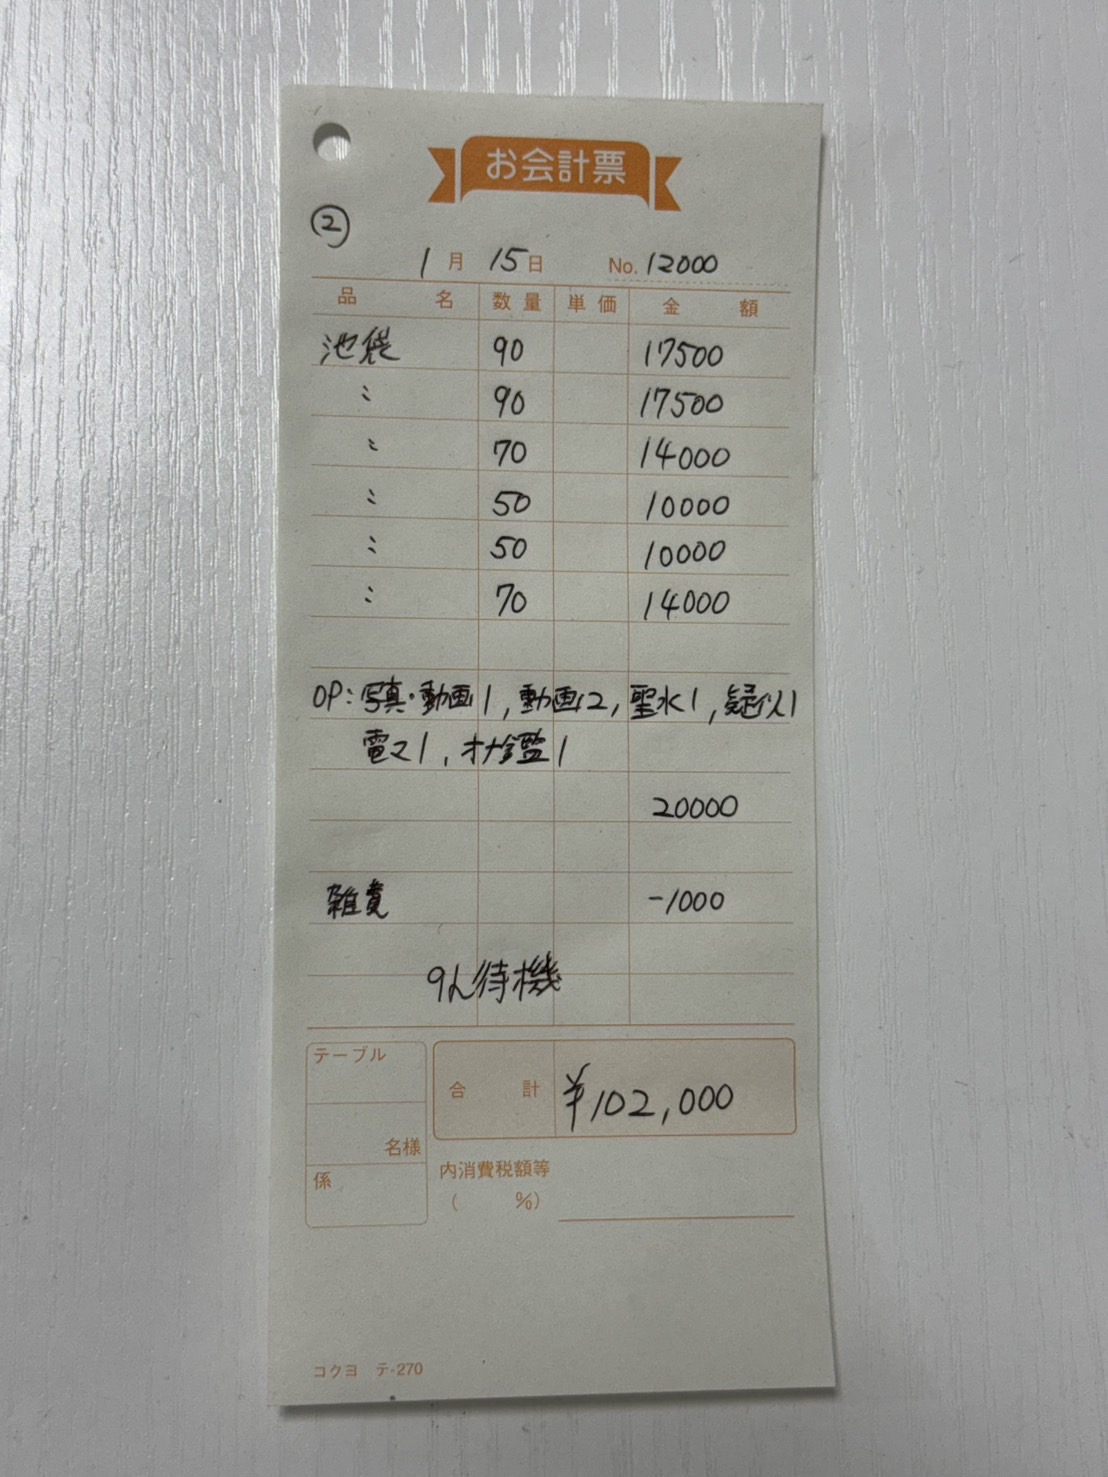 お会計票
②
1月 15日 No. 12000
品名 数量 単価 金額
池袋 90 17500
〃 90 17500
〃 70 14000
〃 50 10000
〃 50 10000
〃 70 14000
OP:写真・動画1, 動画2, 聖水1, 疑似1
電マ1, オナ鑑1
20000
雑費 -1000
9h待機
テーブル
名様
係
合計 ¥102,000
内消費税額等
( %)
コクヨ テ-270